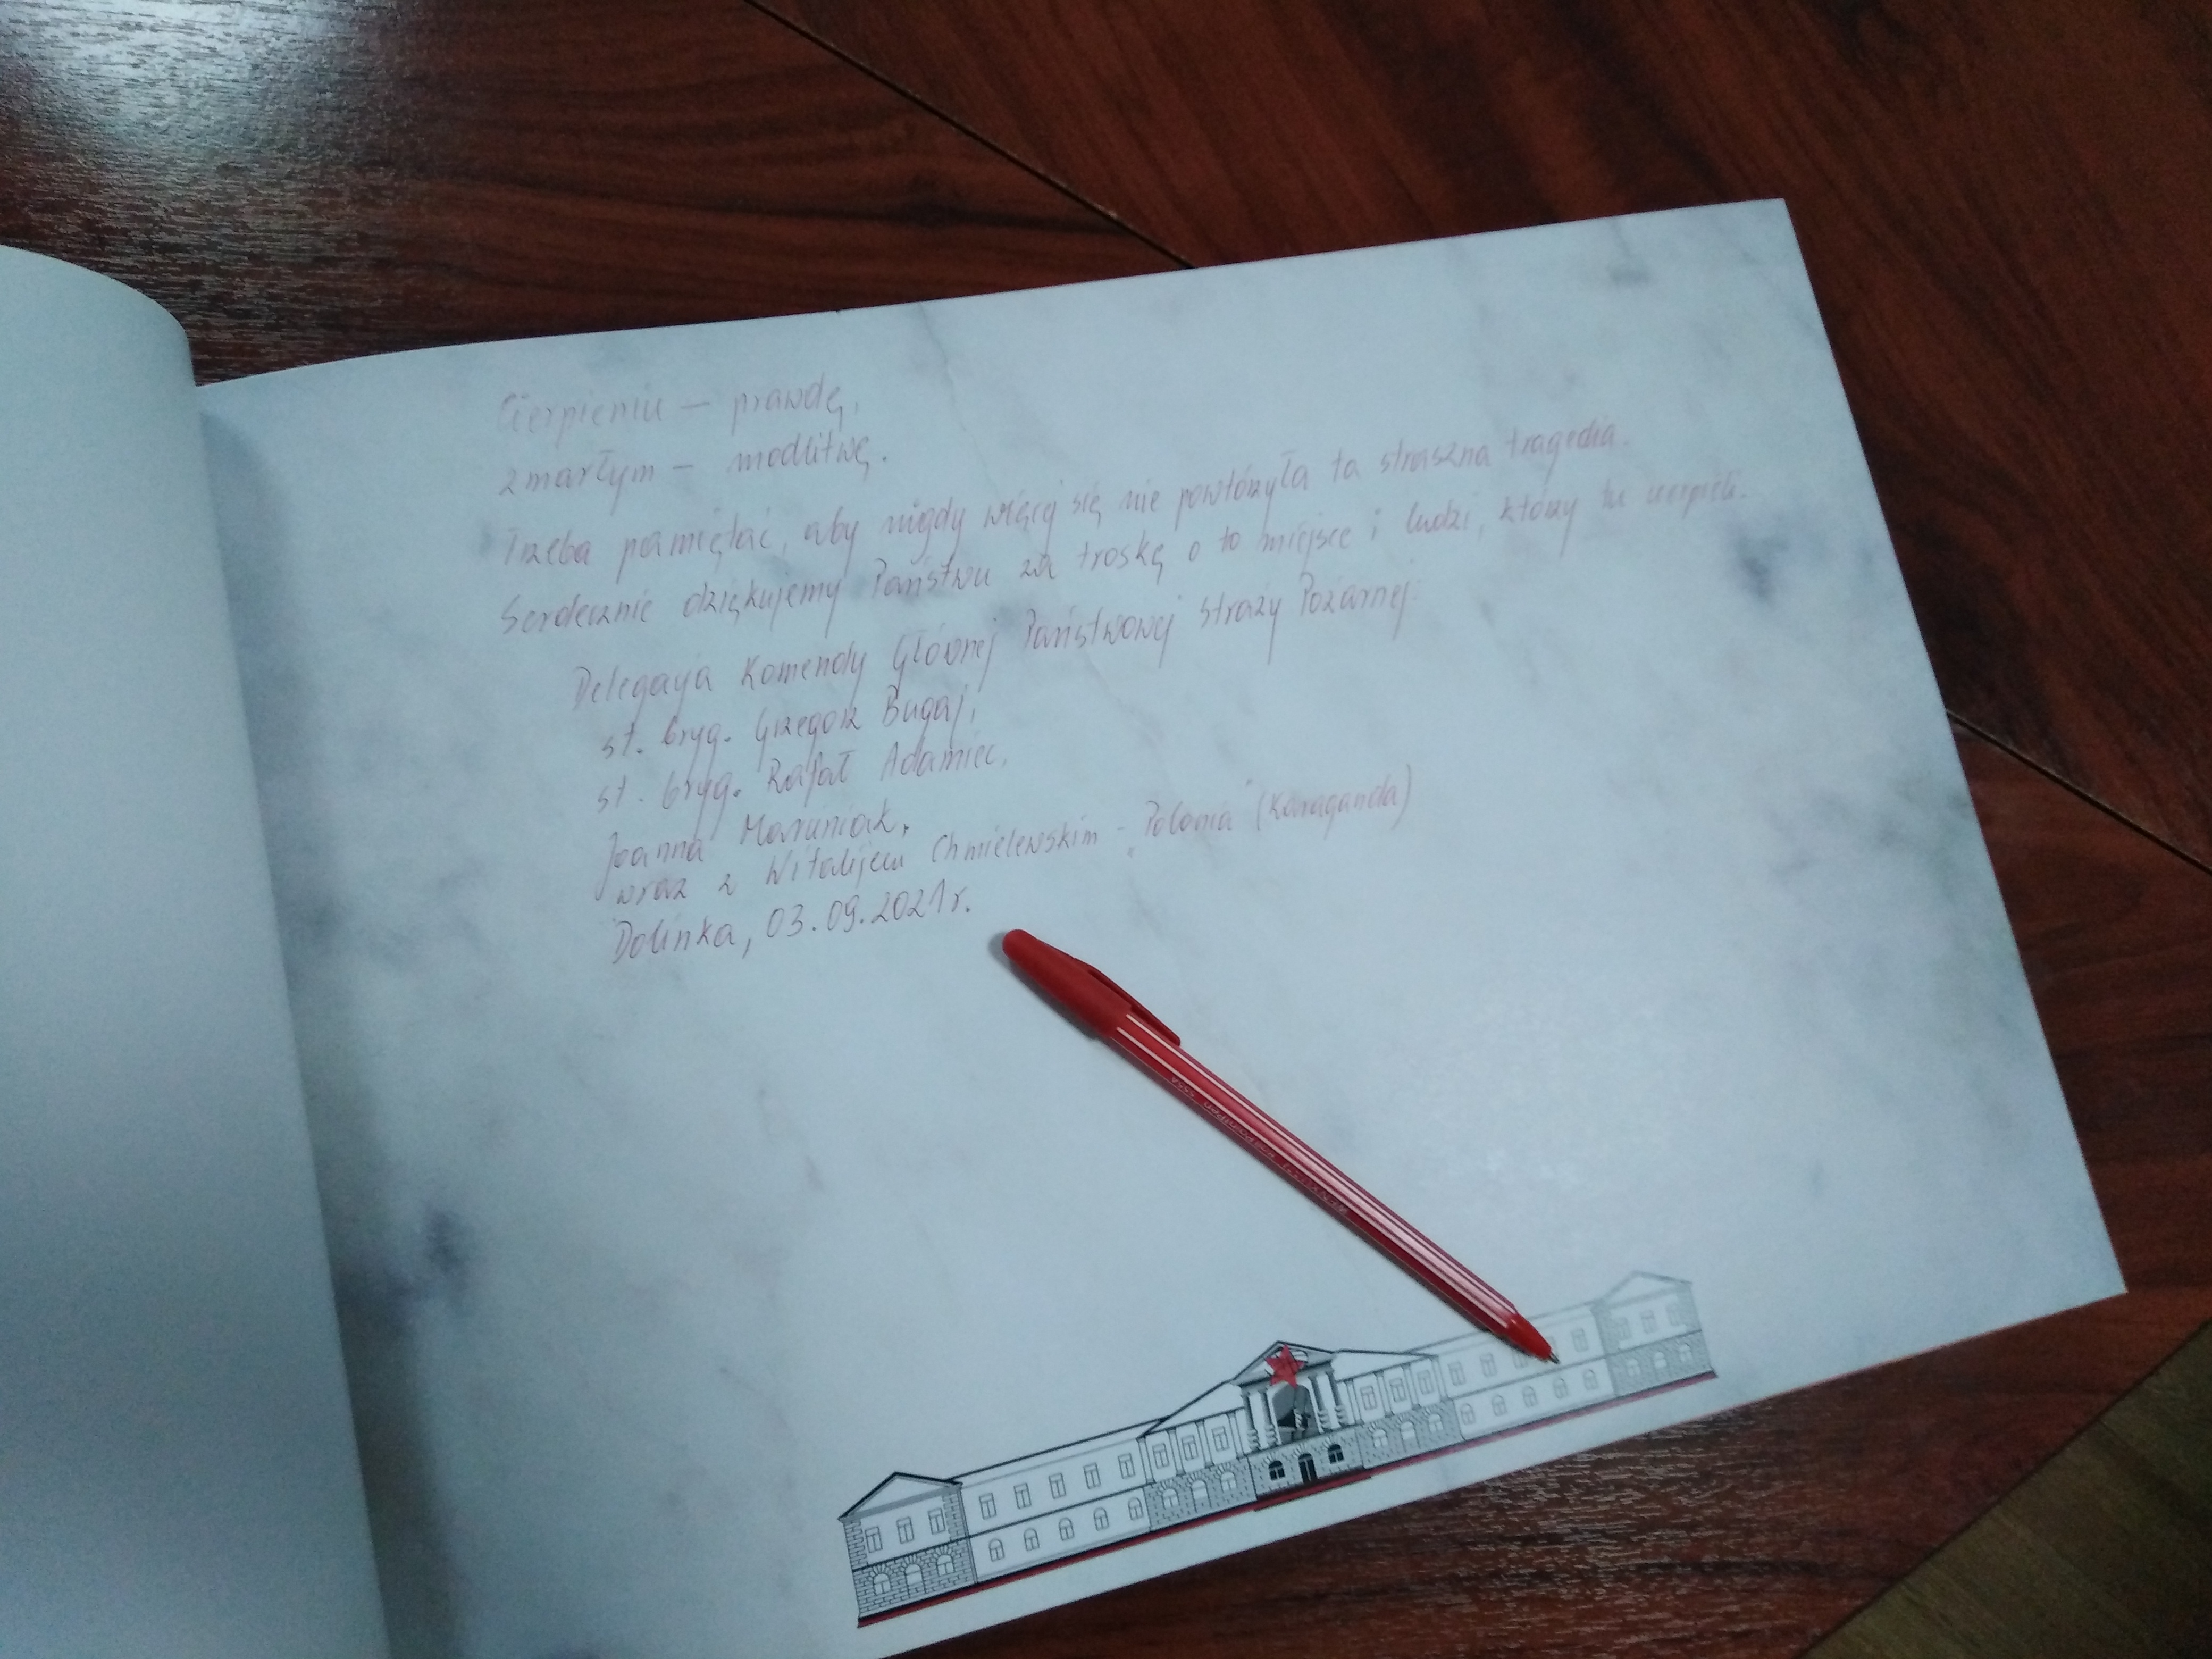 Cierpieniu – prawdę,
zmarłym – modlitwę.
Trzeba pamiętać, aby nigdy więcej się nie powtórzyła ta straszna tragedia.
Serdecznie dziękujemy Państwu za troskę o to miejsce i ludzi, którzy tu cierpieli.
Delegacja Komendy Głównej Państwowej Straży Pożarnej:
st. bryg. Grzegorz Bugaj,
st. bryg. Rafał Adamiec,
Joanna Maruniak,
wraz z Witalijem Chmielewskim - "Polonia" (Karaganda)
Dolinka, 03.09.2021 r.